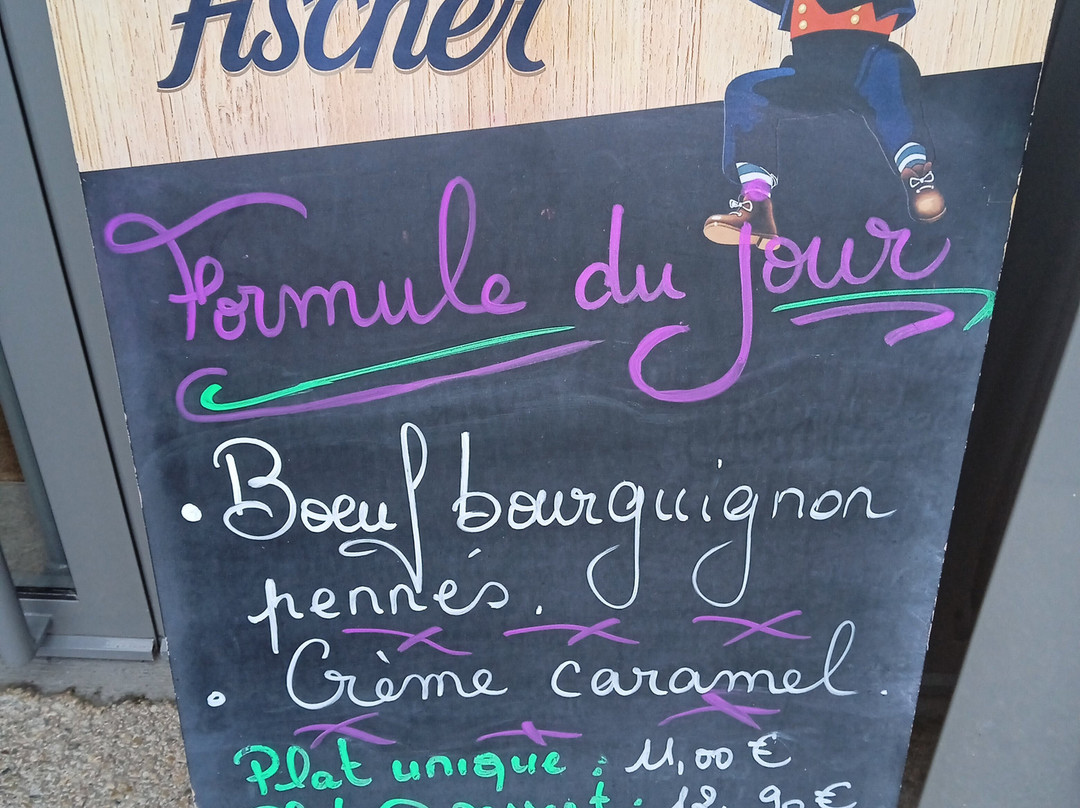 fischer
Formule du jour
• Boeuf bourguignon
pennés.
• Crème caramel.
Plat unique : 11,00 €